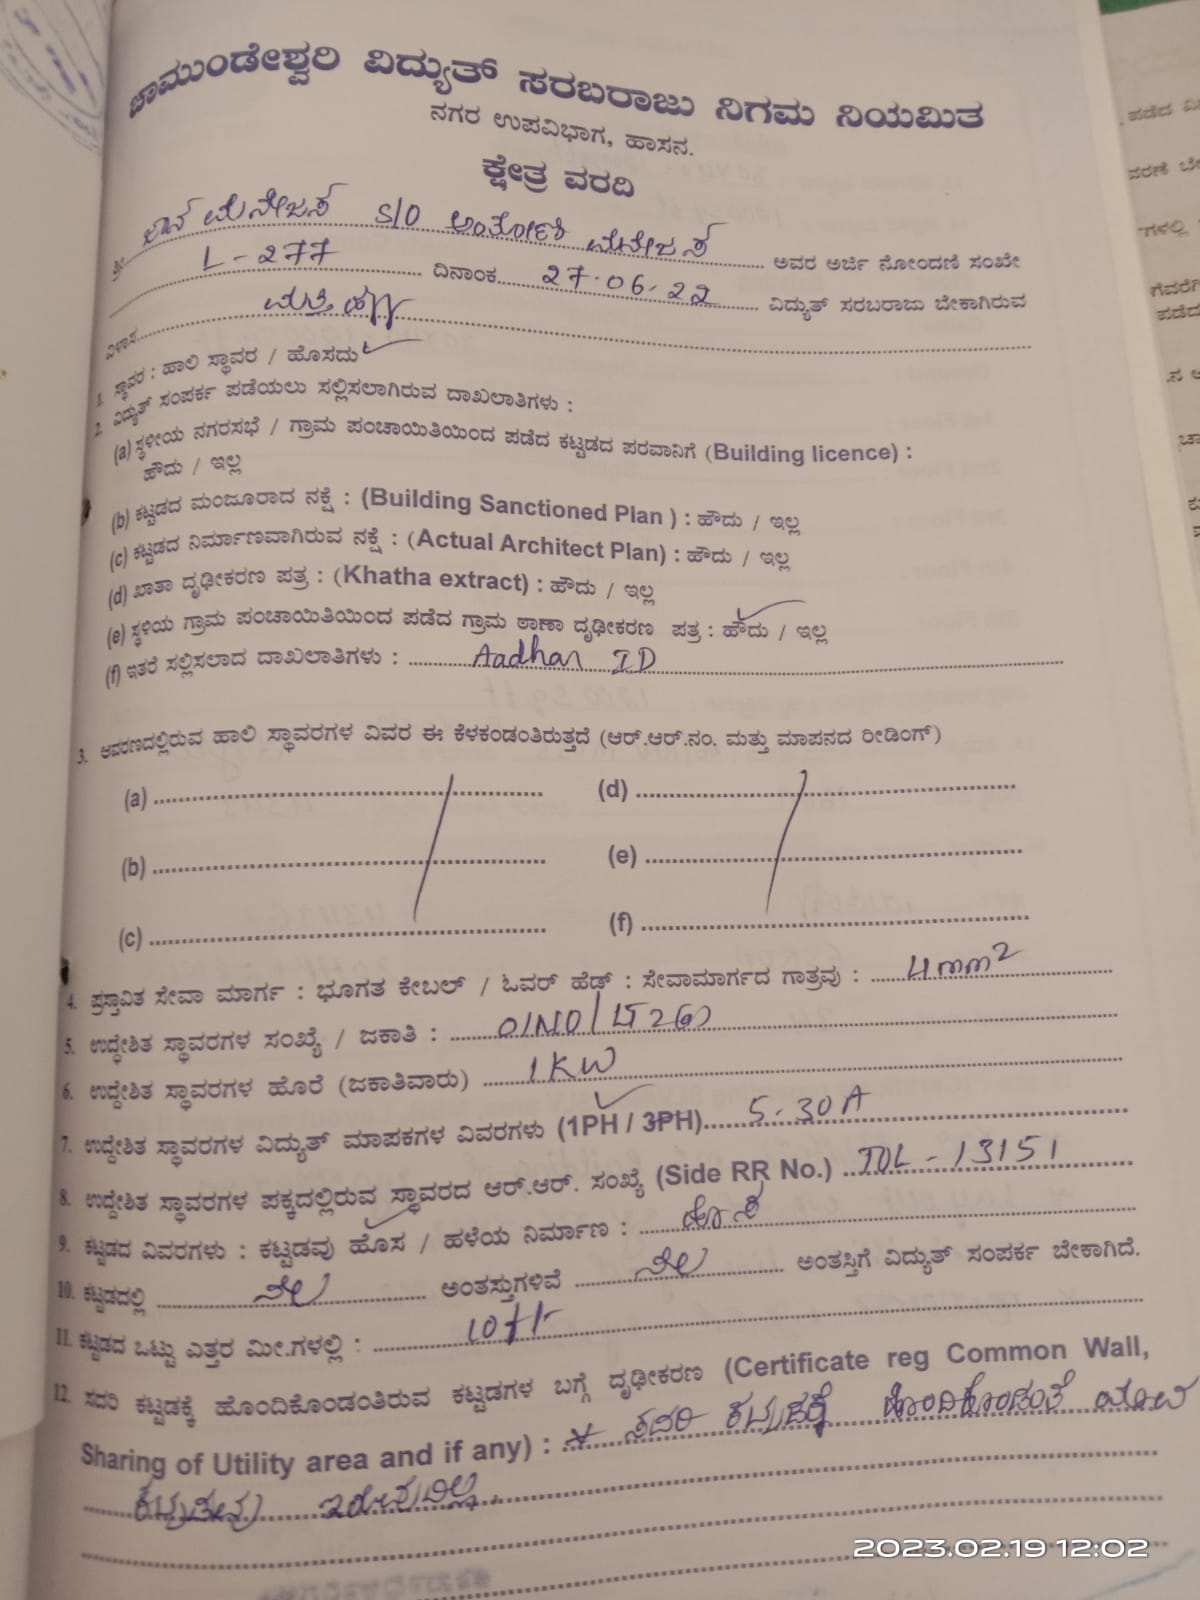 ಚಾಮುಂಡೇಶ್ವರಿ ವಿದ್ಯುತ್ ಸರಬರಾಜು ನಿಗಮ ನಿಯಮಿತ
ನಗರ ಉಪವಿಭಾಗ, ಹಾಸನ.
ಕ್ಷೇತ್ರ ವರದಿ
ಶ್ರೀ S/O ಅಂತೋಣಿ ಮೆನೇಜಸ್ ಅವರ ಅರ್ಜಿ ನೋಂದಣಿ ಸಂಖೇ
L-277 ದಿನಾಂಕ 27.06.22 ವಿದ್ಯುತ್ ಸರಬರಾಜು ಬೇಕಾಗಿರುವ
ವಿಳಾಸ
1. ಸ್ಥಾವರ : ಹಾಲಿ ಸ್ಥಾವರ / ಹೊಸದು
2. ವಿದ್ಯುತ್ ಸಂಪರ್ಕ ಪಡೆಯಲು ಸಲ್ಲಿಸಲಾಗಿರುವ ದಾಖಲಾತಿಗಳು :
(a) ಸ್ಥಳೀಯ ನಗರಸಭೆ / ಗ್ರಾಮ ಪಂಚಾಯಿತಿಯಿಂದ ಪಡೆದ ಕಟ್ಟಡದ ಪರವಾನಿಗೆ (Building licence) :
ಹೌದು / ಇಲ್ಲ
(b) ಕಟ್ಟಡದ ಮಂಜೂರಾದ ನಕ್ಷೆ : (Building Sanctioned Plan ) : ಹೌದು / ಇಲ್ಲ
(c) ಕಟ್ಟಡದ ನಿರ್ಮಾಣವಾಗಿರುವ ನಕ್ಷೆ : (Actual Architect Plan) : ಹೌದು / ಇಲ್ಲ
(d) ಖಾತಾ ದೃಢೀಕರಣ ಪತ್ರ : (Khatha extract) : ಹೌದು / ಇಲ್ಲ
(e) ಸ್ಥಳಿಯ ಗ್ರಾಮ ಪಂಚಾಯಿತಿಯಿಂದ ಪಡೆದ ಗ್ರಾಮ ಠಾಣಾ ದೃಢೀಕರಣ ಪತ್ರ : ಹೌದು / ಇಲ್ಲ
(f) ಇತರೆ ಸಲ್ಲಿಸಲಾದ ದಾಖಲಾತಿಗಳು : Aadhar ID
3. ಆವರಣದಲ್ಲಿರುವ ಹಾಲಿ ಸ್ಥಾವರಗಳ ವಿವರ ಈ ಕೆಳಕಂಡಂತಿರುತ್ತದೆ (ಆರ್.ಆರ್.ನಂ. ಮತ್ತು ಮಾಪನದ ರೀಡಿಂಗ್)
(a) (d)
(b) (e)
(c) (f)
4. ಪ್ರಸ್ತಾವಿತ ಸೇವಾ ಮಾರ್ಗ : ಭೂಗತ ಕೇಬಲ್ / ಓವರ್ ಹೆಡ್ : ಸೇವಾಮಾರ್ಗದ ಗಾತ್ರವು : 4mm²
5. ಉದ್ದೇಶಿತ ಸ್ಥಾವರಗಳ ಸಂಖ್ಯೆ / ಜಕಾತಿ :
6. ಉದ್ದೇಶಿತ ಸ್ಥಾವರಗಳ ಹೊರೆ (ಜಕಾತಿವಾರು) 1KW
7. ಉದ್ದೇಶಿತ ಸ್ಥಾವರಗಳ ವಿದ್ಯುತ್ ಮಾಪಕಗಳ ವಿವರಗಳು (1PH / 3PH) 5-30A
8. ಉದ್ದೇಶಿತ ಸ್ಥಾವರಗಳ ಪಕ್ಕದಲ್ಲಿರುವ ಸ್ಥಾವರದ ಆರ್.ಆರ್. ಸಂಖ್ಯೆ (Side RR No.) TDL-13151
9. ಕಟ್ಟಡದ ವಿವರಗಳು : ಕಟ್ಟಡವು ಹೊಸ / ಹಳೆಯ ನಿರ್ಮಾಣ : ಹೊಸ
10. ಕಟ್ಟಡದಲ್ಲಿ ನೆಲ ಅಂತಸ್ತುಗಳಿವೆ ನೆಲ ಅಂತಸ್ತಿಗೆ ವಿದ್ಯುತ್ ಸಂಪರ್ಕ ಬೇಕಾಗಿದೆ.
11. ಕಟ್ಟಡದ ಒಟ್ಟು ಎತ್ತರ ಮೀ.ಗಳಲ್ಲಿ : 10ft
12. ಸದರಿ ಕಟ್ಟಡಕ್ಕೆ ಹೊಂದಿಕೊಂಡಂತಿರುವ ಕಟ್ಟಡಗಳ ಬಗ್ಗೆ ದೃಢೀಕರಣ (Certificate reg Common Wall,
Sharing of Utility area and if any) : * ಸದರಿ ಕಟ್ಟಡಕ್ಕೆ ಹೊಂದಿಕೊಂಡಂತೆ ಯಾವ
ಇರೋದಿಲ್ಲ.
2023.02.19 12:02